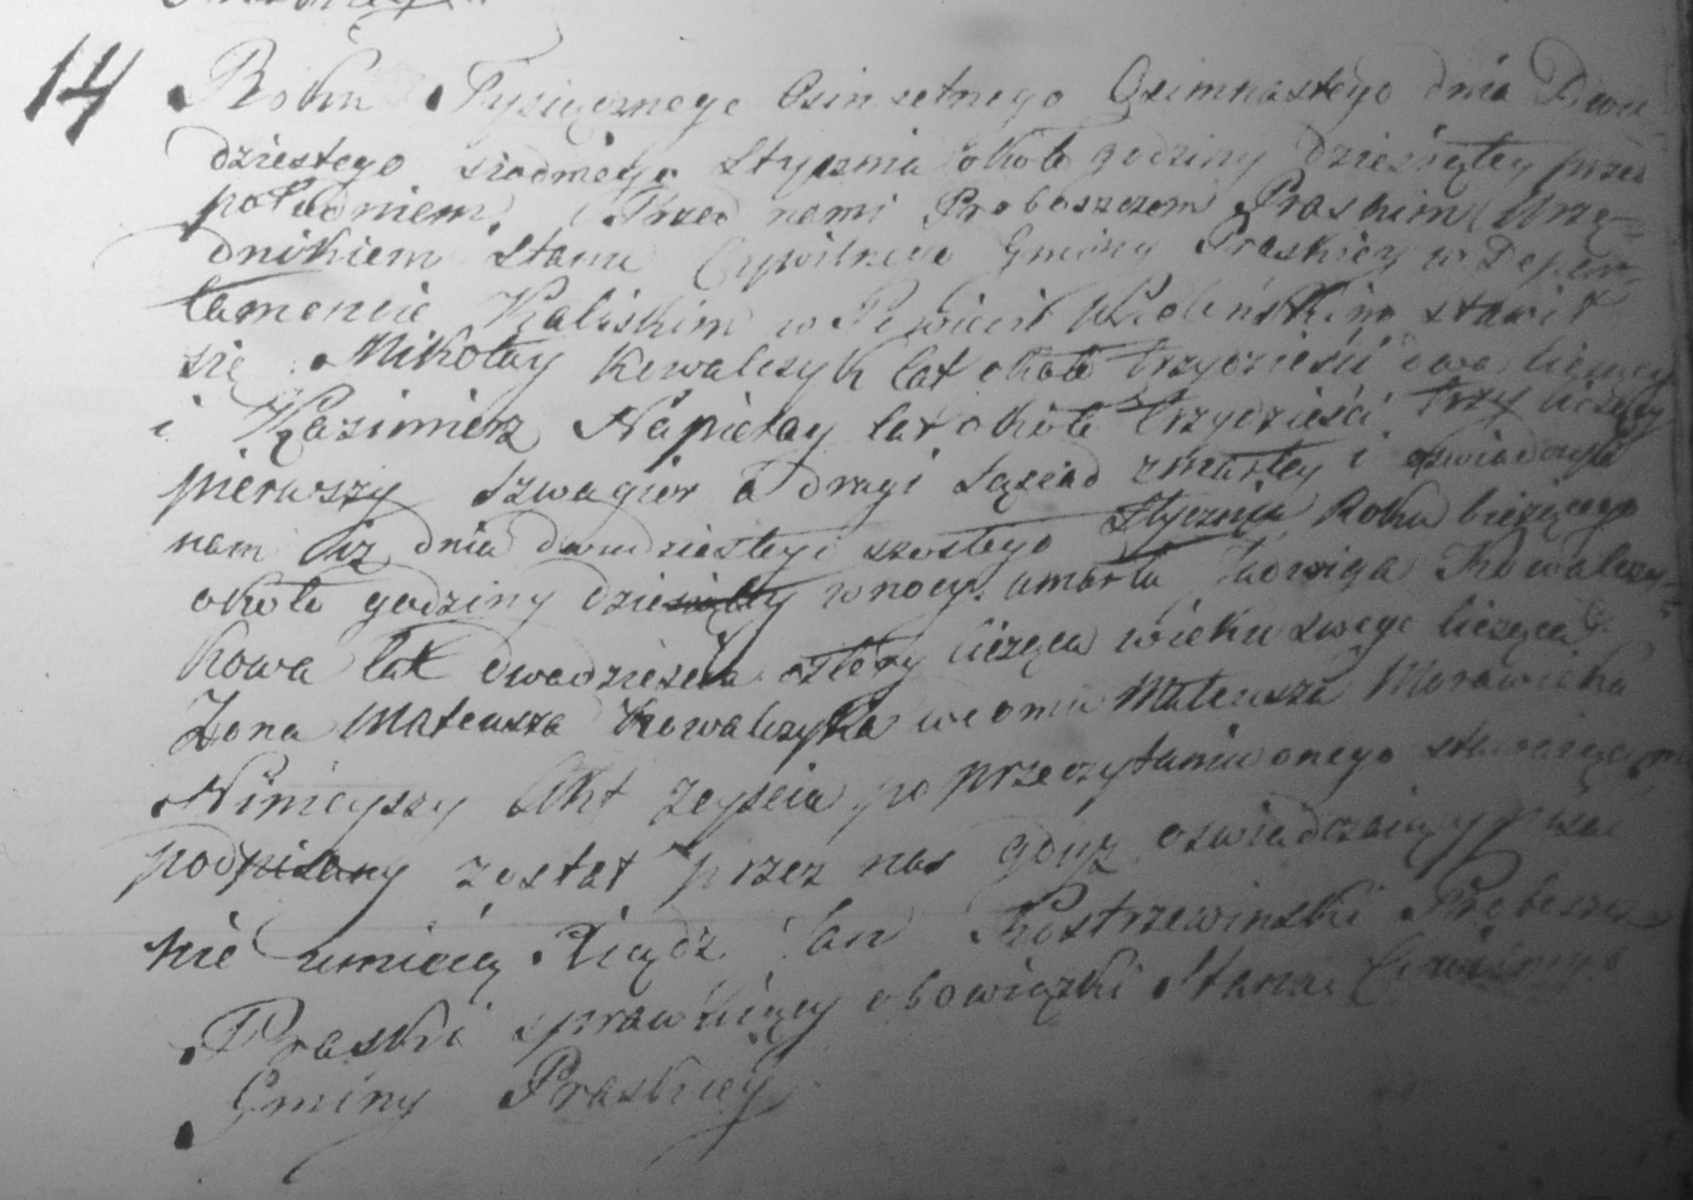 14 Roku Tysiącznego Osimsetnego Osimnastego dnia Dwu-
dziestego siodmego Stycznia około godziny dziesiątey przed
południem. Przed nami Proboszczem Praskim Urzę-
dnikiem Stanu Cywilnego Gminy Praskiey w Depar-
tamencie Kaliskim w Powiecie Wieluńskim stawił
się Mikołay Kowalczyk lat około trzydzieści dwa liczący
i Kazimierz Napieray lat około trzydzieści trzy liczący
pierwszy szwagier a drugi sąsiad zmarłey i oswiadczyli
nam iż dnia dwudziestego szostego Stycznia Roku bieżącego
około godziny dziesiątey w nocy umarła Jadwiga Kowalczy-
kowa lat dwadzieścia cztery liczęca wieku swego liczęca
Zona Mateusza Kowalczyka w domu Mateusza Morawiaka
Ninieyszy Akt Zeyscia po przeczytaniu onego stawaiącym
podpisany został przez nas gdyż oswiadczaiący pisać
nie umieią Xiądz Jan Kostrzewinski Proboszcz
Praski sprawuiący obowiązki Stanu Cywilnego
Gminy Praskiey